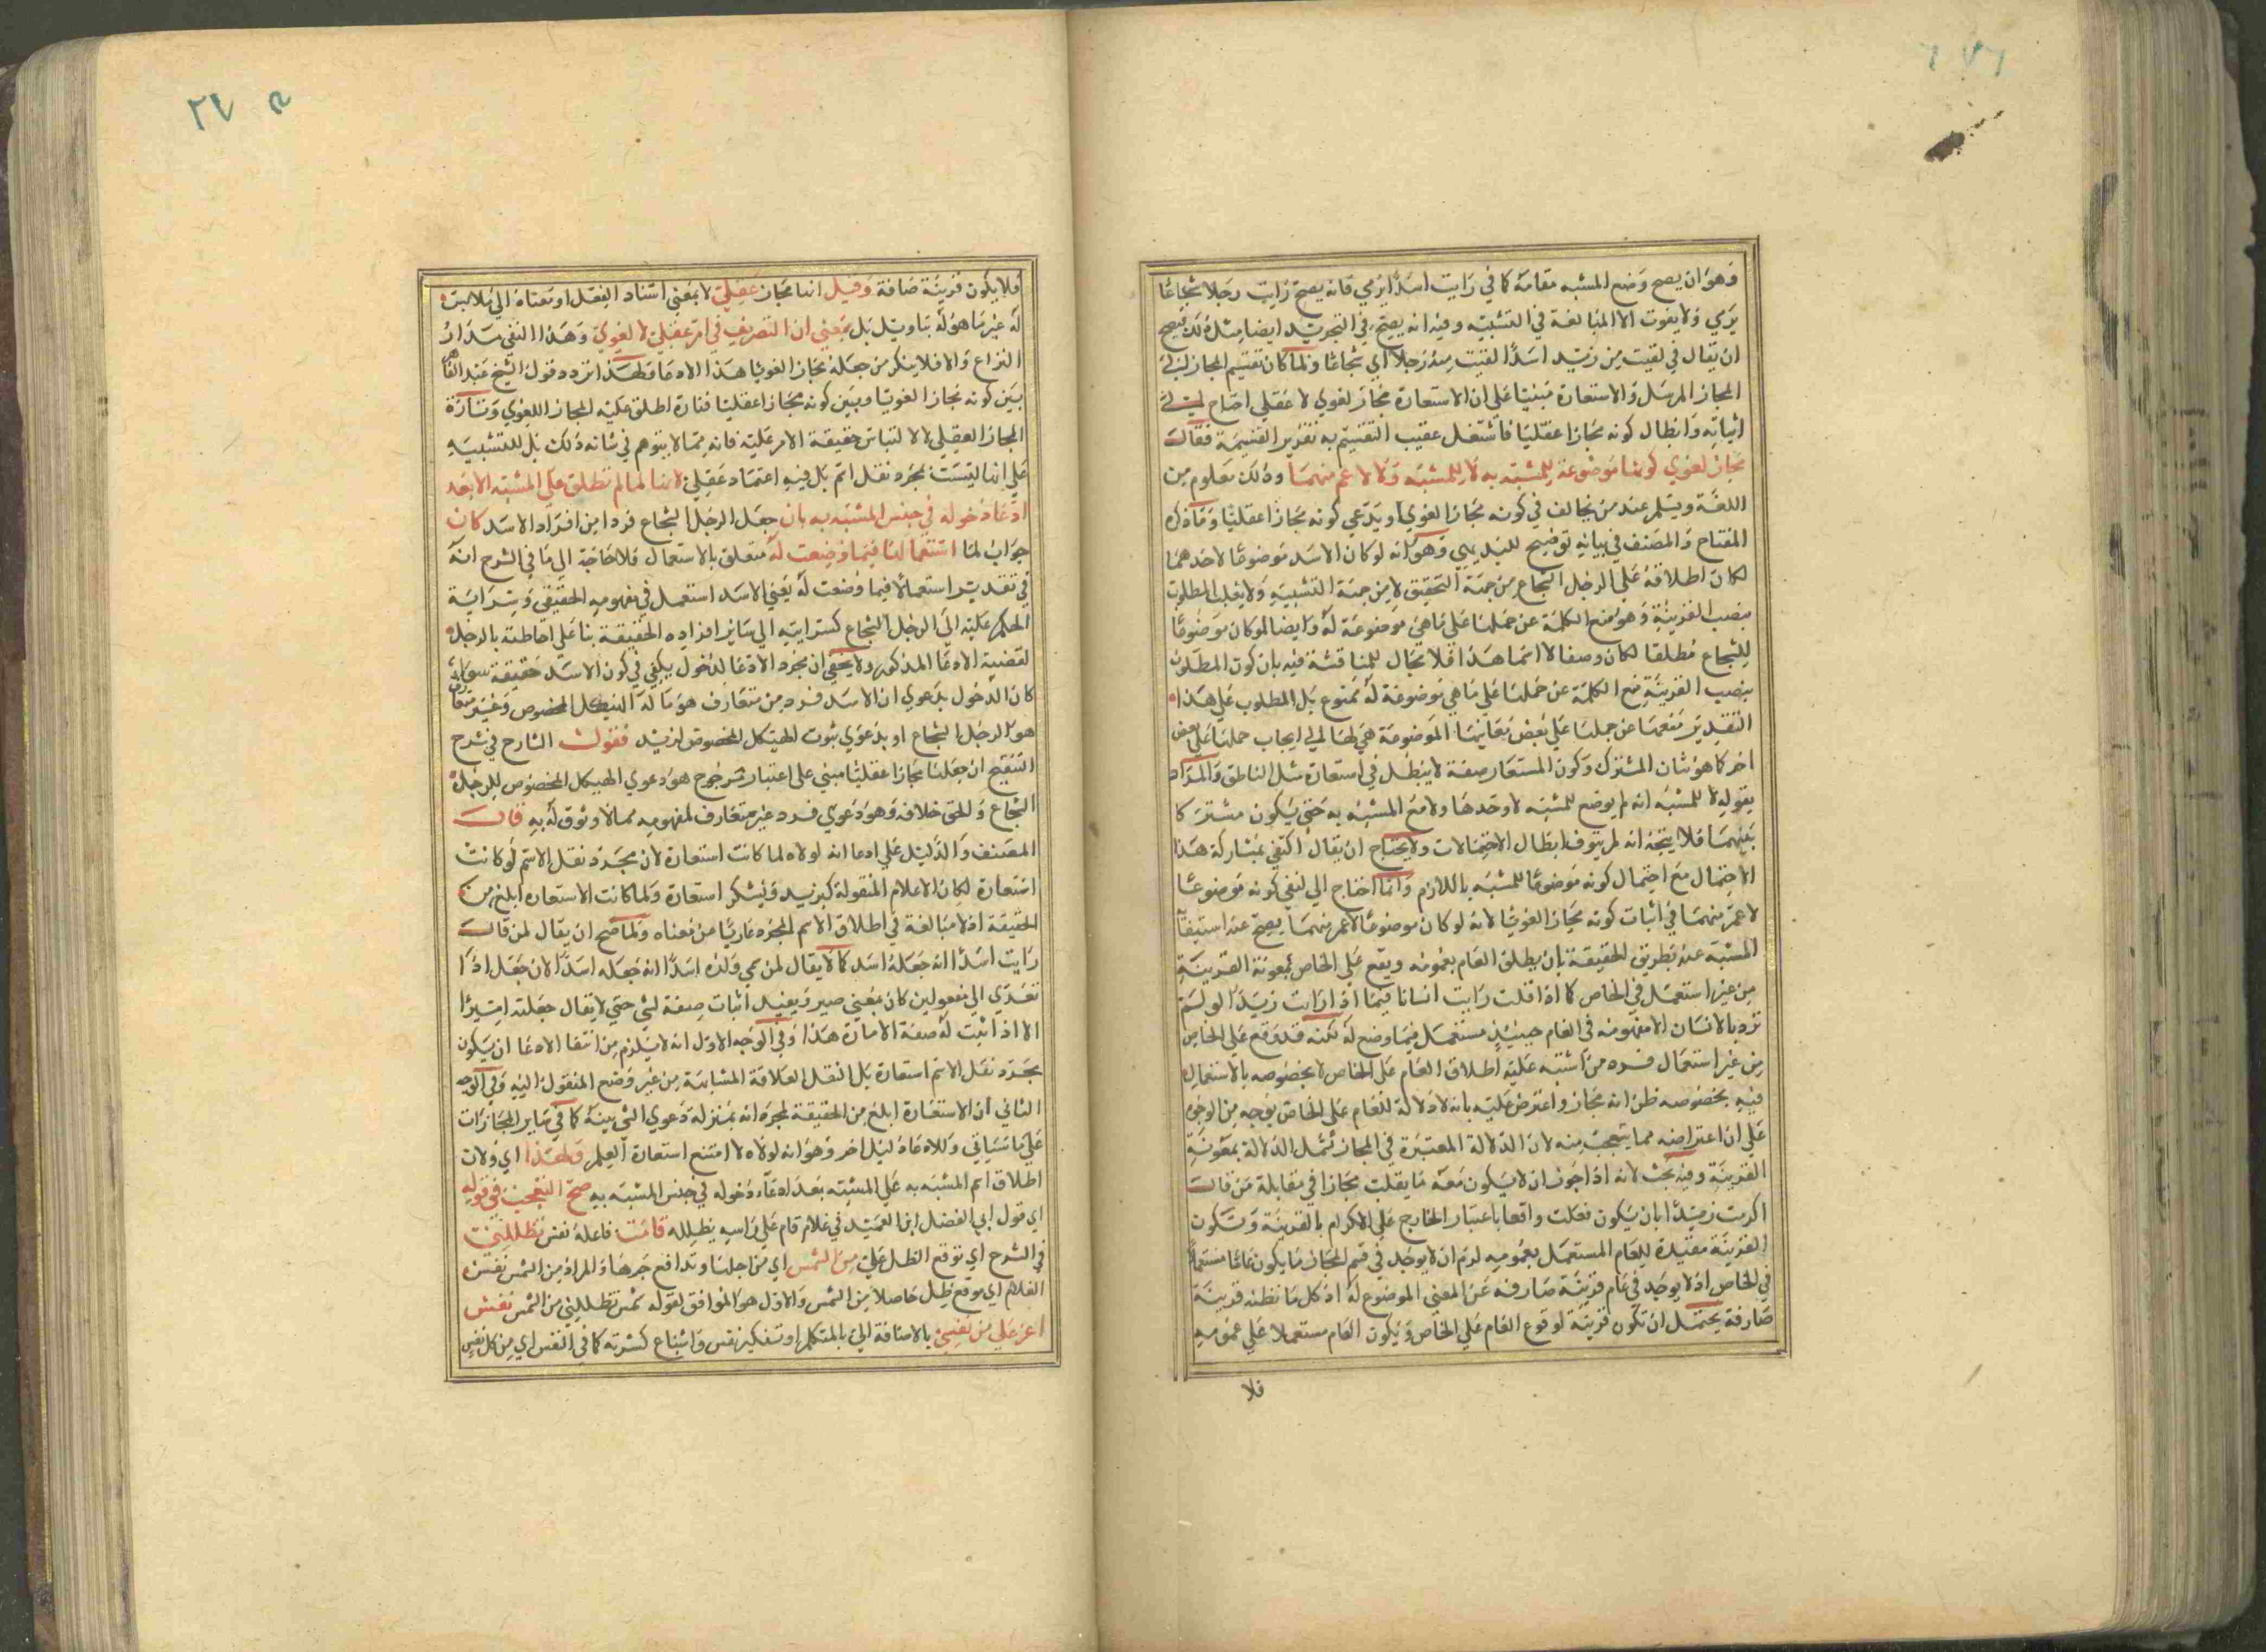 وهو ان يصح وضع المشبه مقامه كما في رايت اسدا يرمي فانه يصح رايت رجلا شجاعا
يرمي ولا يفوت الا المبالغة في التشبيه وفيه انه يصح في التجريد ايضا مثل ذلك فيصح
ان يقال في لقيت من زيد اسدا لقيت منه رجلا اي شجاعا ولما كان تقسيم المجاز الي
المجاز المرسل والاستعارة مبنيا على ان الاستعارة مجاز لغوي لا عقلي احتاج الي
اثباته وابطال كونه مجازا عقليا فاشتغل عقيب التقسيم به تقرير القسمة فقال
مجاز لغوي كونها موضوعة للمشبه به لا للمشبه ولا لاعم منهما وذلك معلوم من
اللغة ويسلم عند من يخالف في كونه مجازا لغويا ويدعي كونه مجازا عقليا وما ذكره
المفتاح والمصنف في بيانه توضيح للبديهي وهو انه لو كان الاسد موضوعا لاحدهما
لكان اطلاقه على الرجل الشجاع من جهة التحقيق لا من جهة التشبيه ولا يقلب المطلوب
بنصب القرينة وهو منع الكلمة عن حملها على ما هي موضوعة له وايضا لو كان موضوعا
للشجاع مطلقا لكان وصفا لا اسما هذا فلا مجال للمناقشة فيه بان كون المطلوب
بنصب القرينة منع الكلمة عن حملها على ما هي موضوعة له ممنوع بل المطلوب على هذا
التقدير منعها عن حملها على بعض معانيها الموضوعة هي لها الي ايجاب حملها على بعض
اخر كما هو شان المشترك وكون المستعار صفة لا يبطل في استعارة مثل الناطق والمراد
بقوله لا للمشبه انه لم يوضع للمشبه لا وحدها ولا مع المشبه به حتى يكون مشتركا
بينهما فلا يتجه انه لم يتوف ابطال الاحتمالات ولا يحتاج ان يقال اكتفي بمشاركة هذا
الاحتمال مع احتمال كونه موضوعا للمشبه باللازم وانما احتاج الي نفي كونه موضوعا
لاعم منهما في اثبات كونه مجازا لغويا لانه لو كان موضوعا لاعم منهما يصح عند استيفا
المشبه عنه بطريق الحقيقة بان يطلق العام بعمومه ويقع على الخاص بمعونة القرينة
من غير استعمل في الخاص كما اذا قلت رايت انسانا فيما اذا رايت زيدا لو لم
ترد بالانسان الا مفهومه فالعام حينئذ مستعمل فيما وضع له لكنه قد وقع على الخاص
من غير استعمال فيه ومن اشتبه عليه اطلاق العام على الخاص لا بخصوصه بالاستعمال
فيه بخصوصه ظن انه مجاز واعترض عليه بانه لا دلالة للعام على الخاص بوجه من الوجوه
على ان اعتراضه مما يتعجب منه لان الدلالة المعتبرة في المجاز تشمل الدلالة بمعونة
القرينة وفيه بحث لانه اذا جوز ان لا يكون معه ما يقلب مجازا في مقابلة من قال
اكرمت زيدا بان يكون فعلت واقعا باعتبار الخارج على الاكرام بالقرينة وتكون
القرينة مقيدة للعام المستعمل بعمومه لزم ان لا يوجد في قسم المجاز ما يكون عاما مستعملا
في الخاص اذ لا يوجد في عام قرينة صارفة عن المعنى الموضوع له اذ كل ما نظنه قرينة
صارفة يحتمل ان تكون قرينة لوقوع العام على الخاص ويكون العام مستعملا على عمومه
فلا
فلا يكون قرينة صارفة وقيل انها مجاز عقلي لا بمعنى اسناد الفعل او معناه الي ملابس
له غير ما هو له بتاويل بل بمعنى ان التصرف في امر عقلي لا لغوي وهذا النفي مدار
النزاع والا فلا ينكر من جعله مجازا لغويا هذا الادعا ولهذا تردد قول الشيخ عبد القاهر
بين كونه مجازا لغويا وبين كونه مجازا عقليا فتارة اطلق عليه المجاز اللغوي وتارة
المجاز العقلي لا لالتباس حقيقة الامر عليه فانه مما لا يتوهم في شانه ذلك بل للتنبيه
على انها ليست مجرد نقل اسم بل فيه اعتماد عقلي لانها لما لم تطلق على المشبه الا بعد
ادعا دخوله في جنس المشبه به بان جعل الرجل الشجاع فردا من افراد الاسد كان
جواب لما استعمالها فيما وضعت له متعلق بالاستعمال فلا حاجة الي ما في الشرح انه
في تقدير استعمالا فيما وضعت له يعني الاسد استعمل في مفهومه الحقيقي وسراية
الحكم عليه الى الرجل الشجاع كسرايته الي سائر افراده الحقيقة بنا على احاطته بالرجل
لقضية الادعا المذكور ولا يخفى ان مجرد الادعا لدخول يكفي في كون الاسد حقيقة سواء
كان الدخول بدعوي ان الاسد فرده من متعارف هو ما له الهيكل المخصوص وغير متعارف
هو الرجل الشجاع او بدعوي ثبوت الهيكل المخصوص لزيد فقول الشارح في شرح
التنقيح ان جعلها مجازا عقليا مبني على اعتبار مرجوح هو دعوي الهيكل المخصوص للرجل
الشجاع والحق خلافه وهو دعوي فرد غير متعارف لمفهومه مما لا وثوق له به قال
المصنف والدليل على ادعا انه لولاه لما كانت استعارة لان مجرد نقل الاسم لو كانت
استعارة لكان الاعلام المنقولة كيزيد ويشكر استعارة ولما كانت الاستعاره ابلغ من
الحقيقة اذ لا مبالغة في اطلاق الاسم المجرد عاريا من معناه ولما صح ان يقال لمن قال
رايت اسدا انه جعله اسدا كما لا يقال لمن سمي ولده اسدا انه جعله اسدا لان جعل اذا
تعدي الي مفعولين كان بمعنى صير ويفيد اثبات صفة لشي حتي لا يقال جعلته اميرا
الا اذا ثبت له صفة الامارة هذا وفي الوجه الاول انه لا يلزم من انتفا الادعا ان يكون
مجرد نقل الاسم استعارة بل النقل لعلاقة المشابهة من غير وضع المنقول اليه وفي الوجه
الثاني ان الاستعارة ابلغ من الحقيقة لمجرد انه بمنزلة دعوي الشي ببينة كما في ساير المجازات
على ما سياتي وللادعا دليل اخر وهو انه لولاه لامتنع استعارة العلم ولهذا اي ولان
اطلاق اسم المشبه به على المشبه بعد ادعاء دخوله في جنس المشبه به صح التعجب في قوله
اي قول ابي الفضل ابن العميد في غلام قام على راسه يظلله قامت فاعله نفس تظللني
في الشرح اي توقع الظل علي من الشمس اي من اجلها وتدافع حرها والمراد من الشمس نفس
الغلام اي توقع ظل حاصلا من الشمس والاول هو الموافق لقوله شمس تظللني من الشمس نفس
اعز علي من نفسي بالاضافة الي يا المتكلم او تنكير نفس واشباع كسرته كما في النفس اي من كل نفس